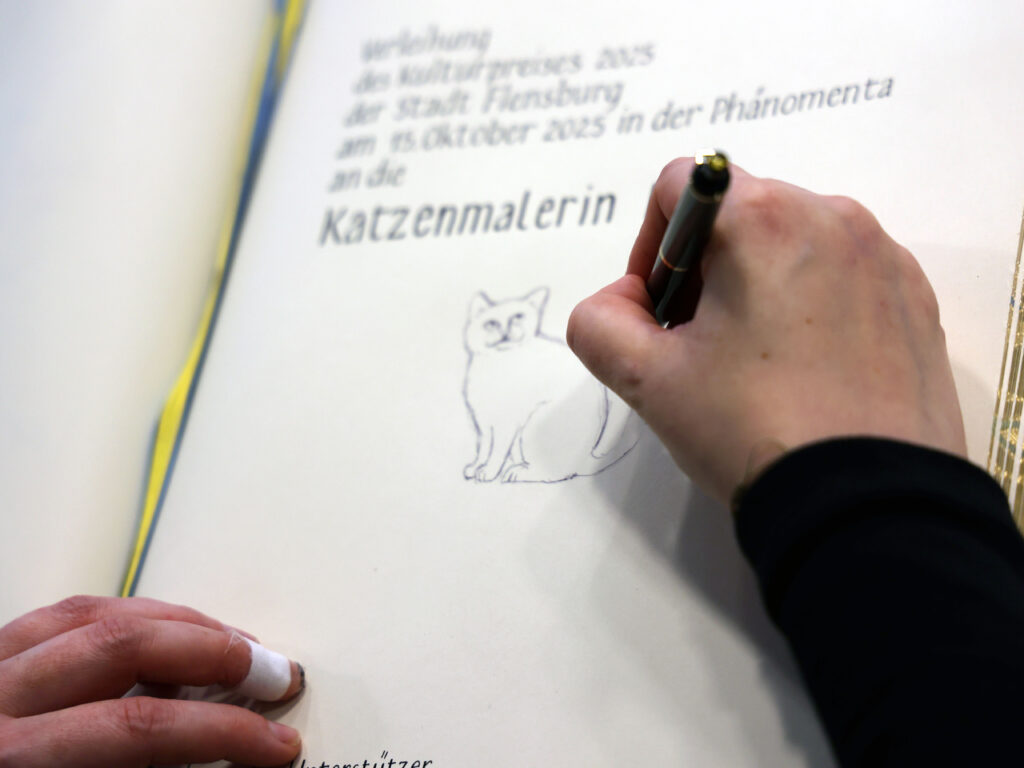 Verleihung
des Kulturpreises 2025
der Stadt Flensburg
am 15. Oktober 2025 in der Phänomenta
an die
Katzenmalerin
Unterstützer